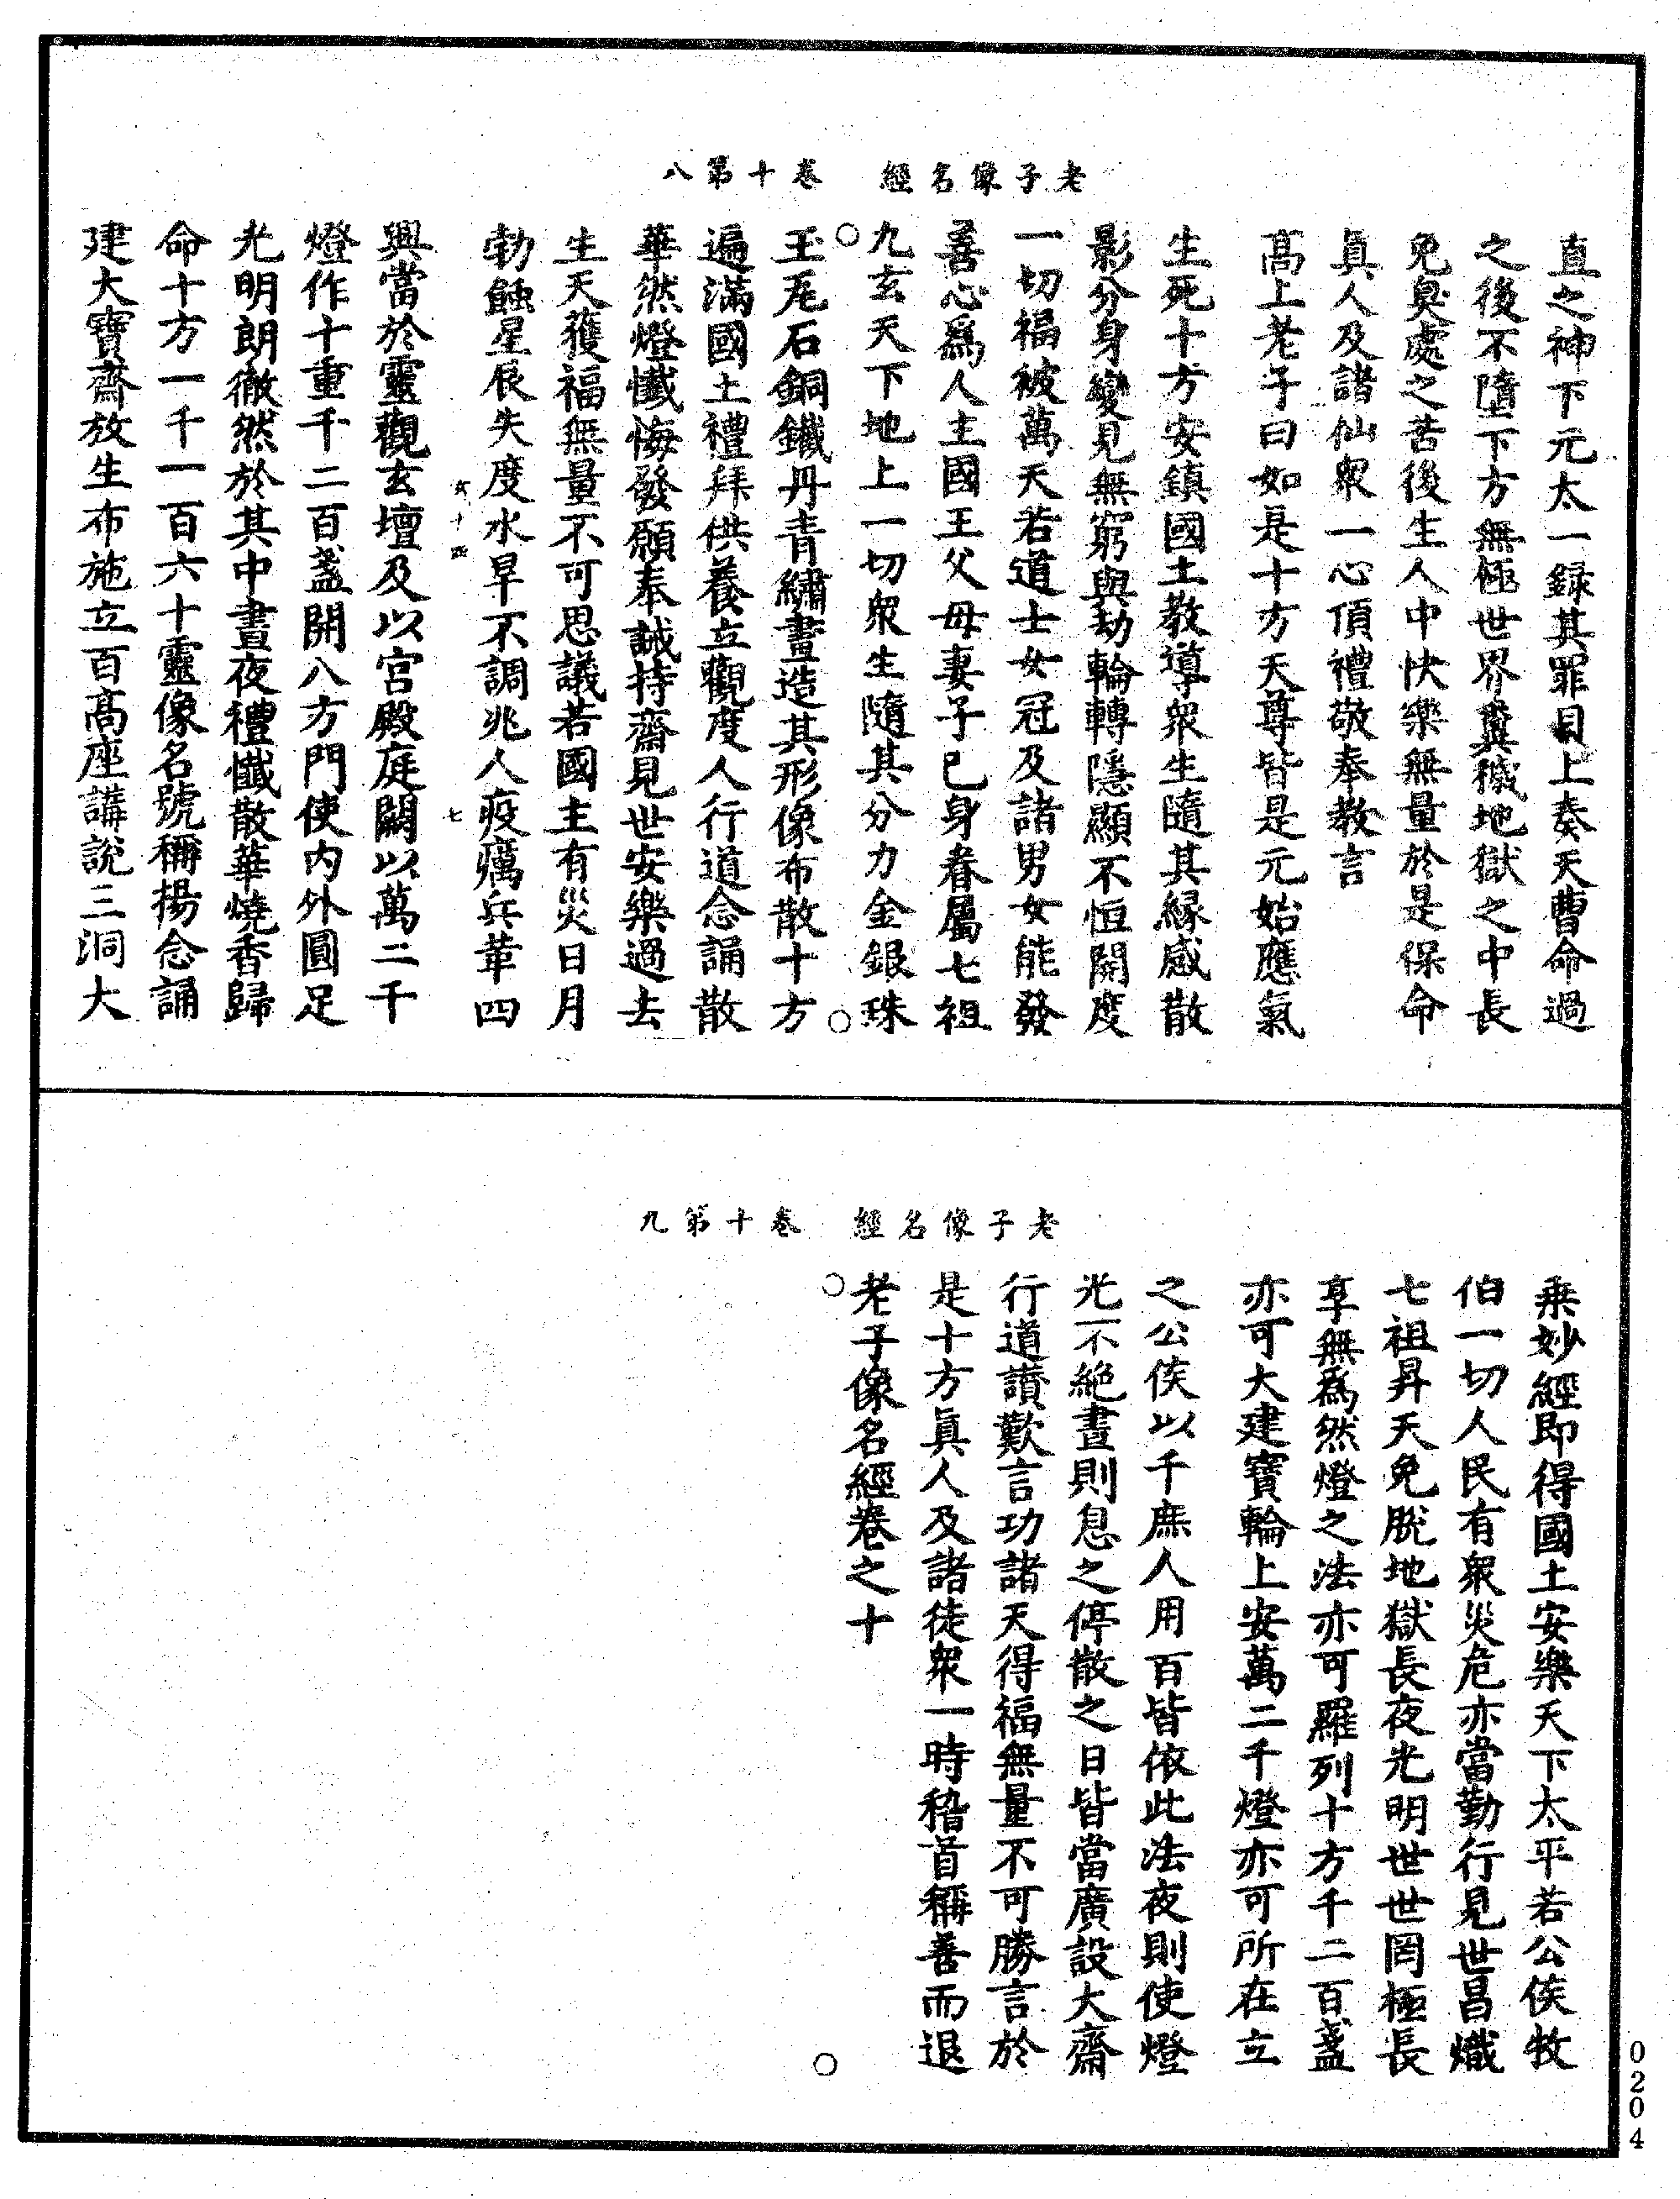 老子像名經　卷十第八
直之神下元太一録其罪目上奏天曹命過
之後不墮下方無極世界糞穢地獄之中長
免臭處之苦後生人中快樂無量於是保命
真人及諸仙衆一心頂禮敬奉教言
高上老子曰如是十方天尊皆是元始應氣
生死十方安鎮國土教導衆生隨其緣感散
影分身變見無窮與劫輪轉隱顯不恒開度
一切福被萬天若道士女冠及諸男女能發
善心爲人主國王父母妻子己身眷屬七祖
九玄天下地上一切衆生隨其分力金銀珠
玉瓦石銅鐵丹青繡畫造其形像布散十方
遍滿國土禮拜供養立觀度人行道念誦散
華然燈懺悔發願奉誡持齋見世安樂過去
生天獲福無量不可思議若國主有災日月
勃蝕星辰失度水旱不調兆人疫癘兵革四
七
興當於靈觀玄壇及以宫殿庭闕以萬二千
燈作十重千二百盞開八方門使内外圓足
光明朗徹然於其中晝夜禮懺散華燒香歸
命十方一千一百六十靈像名號稱揚念誦
建大寶齋放生布施立百高座講說三洞大
老子像名經　卷十第九
乗妙經即得國土安樂天下太平若公侯牧
伯一切人民有衆災危亦當勤行見世昌熾
七祖昇天免脱地獄長夜光明世世罔極長
享無爲然燈之法亦可羅列十方千二百盞
亦可大建寶輪上安萬二千燈亦可所在立
之公侯以千庶人用百皆依此法夜則使燈
光不絶晝則息之停散之日皆當廣設大齋
行道讃歎言功諸天得福無量不可勝言於
是十方真人及諸徒衆一時稽首稱善而退
老子像名經卷之十
0204